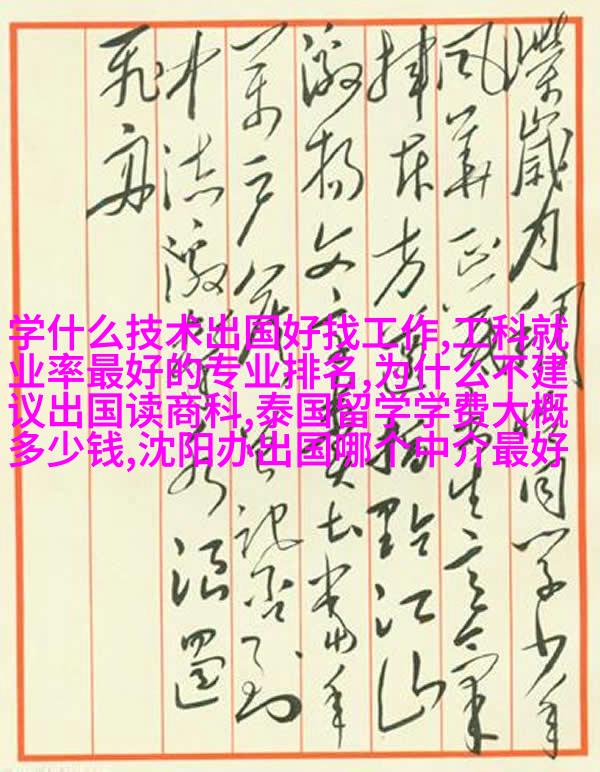 学什么技术出国好找工作,工科就
业率最好的专业排名,为什么不建
议出国读商科,泰国留学学费大概
多少钱,沈阳办出国哪个中介最好
歲月稠恰同学少年
风華正茂书生意氣
揮斥方遒指點江山
激扬文字粪土當年
万户侯曾记否到
中流水浪遏
飛舟